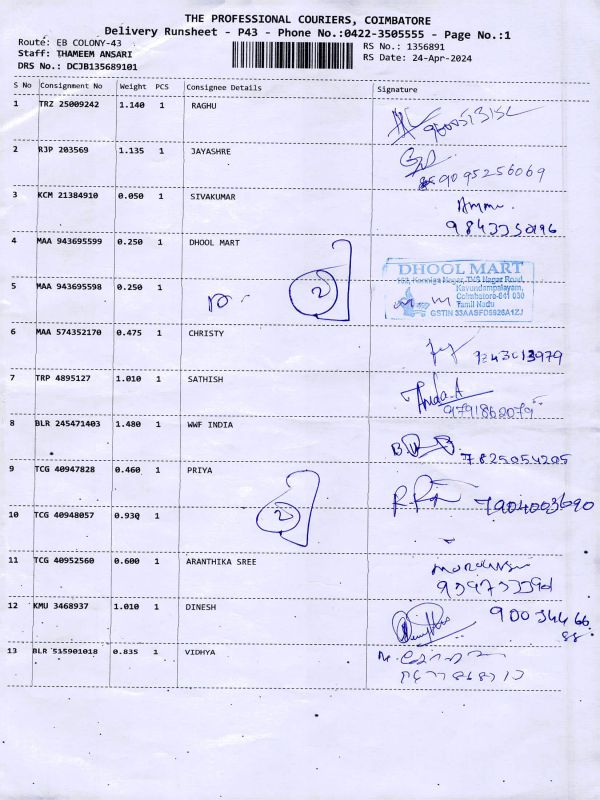 THE PROFESSIONAL COURIERS, COIMBATORE
Delivery Runsheet - P43 - Phone No.:0422-3505555 - Page No.:1
Route: EB COLONY-43
RS No.: 1356891
Staff: THAMEEM ANSARI
RS Date: 24-Apr-2024
DRS No.: DCJB135689101
S No Consignment No Weight PCS Consignee Details Signature
1 TRZ 25009242 1.140 1 RAGHU
2 RJP 203569 1.135 1 JAYASHRE
9095256069
3 KCM 21384910 0.050 1 SIVAKUMAR
Ammu
9843350196
4 MAA 943695599 0.250 1 DHOOL MART
2
5 MAA 943695598 0.250 1
DHOOL MART
Kavundampalayam,
Coimbatore-641 030
Tamil Nadu
GSTIN 33AASFD5926A1ZJ
6 MAA 574352170 0.475 1 CHRISTY
7 TRP 4895127 1.010 1 SATHISH
9791862079
8 BLR 245471403 1.480 1 WWF INDIA
7825054205
9 TCG 40947828 0.460 1 PRIYA
7904003690
10 TCG 40948057 0.930 1
2
11 TCG 40952560 0.600 1 ARANTHIKA SREE
12 KMU 3468937 1.010 1 DINESH
90034466
88
13 BLR 515901018 0.835 1 VIDHYA